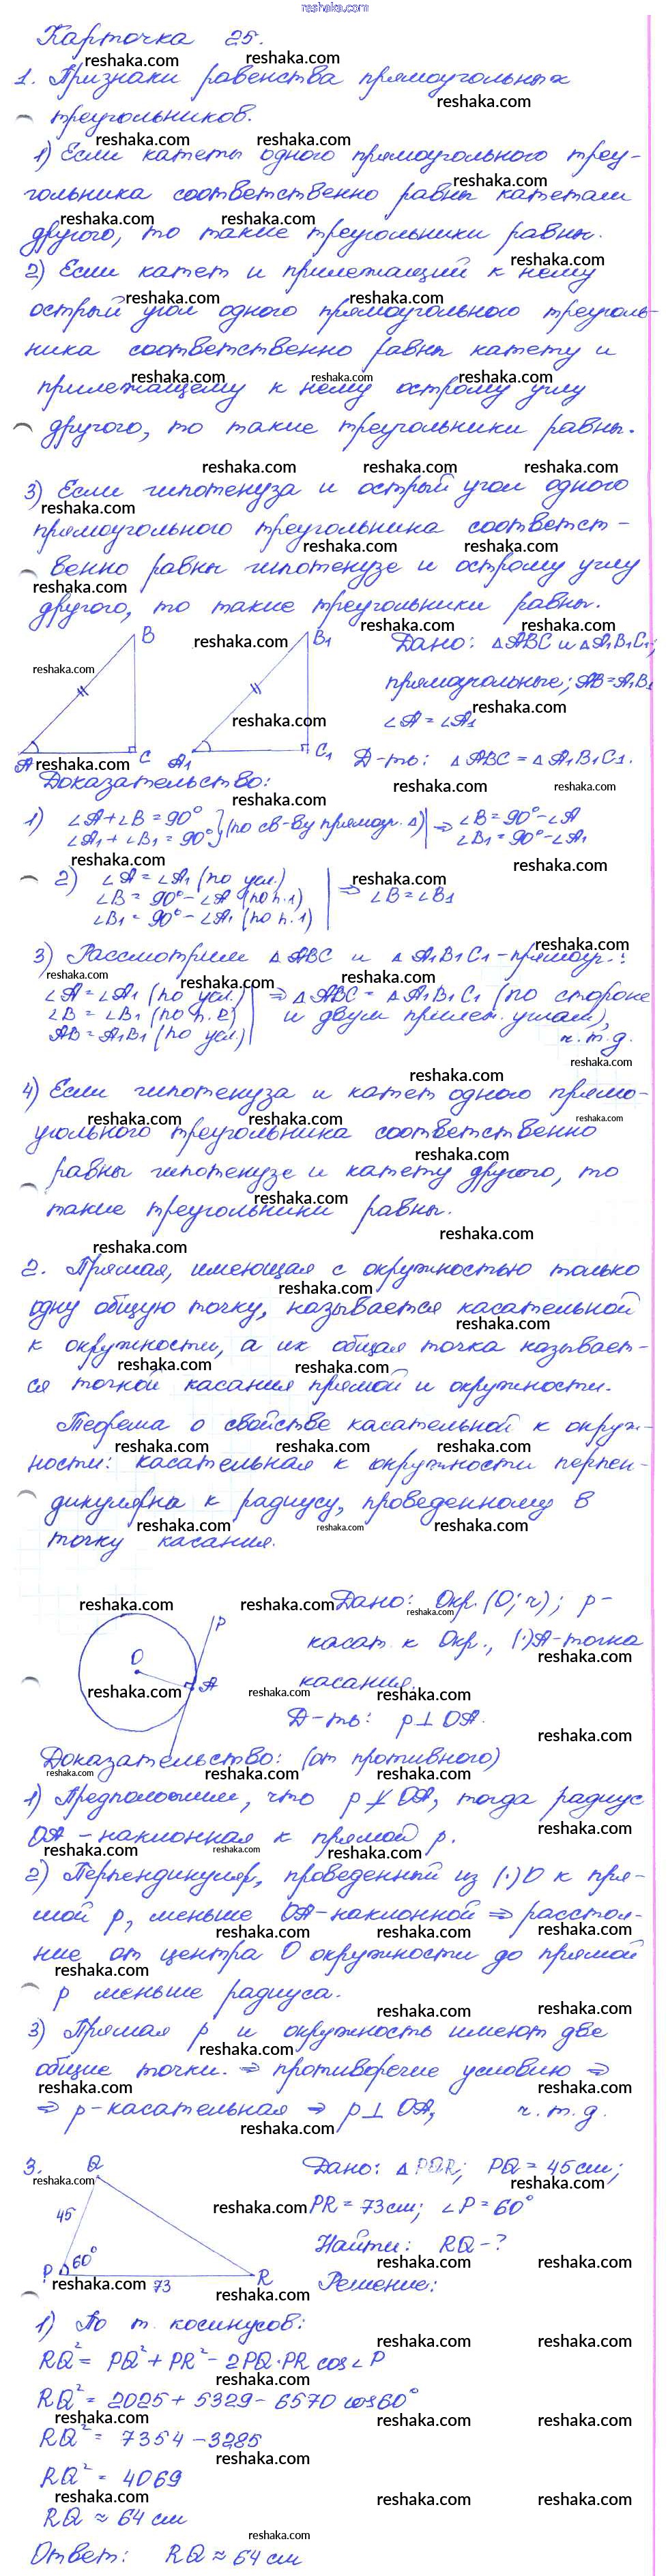 reshaka.com
Карточка 25.
1. Признаки равенства прямоугольных
треугольников.
1) Если катеты одного прямоугольного треу-
гольника соответственно равны катетам
другого, то такие треугольники равны.
2) Если катет и прилежащий к нему
острый угол одного прямоугольного треуголь-
ника соответственно равны катету и
прилежащему к нему острому углу
другого, то такие треугольники равны.
3) Если гипотенуза и острый угол одного
прямоугольного треугольника соответст-
венно равны гипотенузе и острому углу
другого, то такие треугольники равны.
B B₁ Дано: △ABC и △A₁B₁C₁;
прямоугольные; AB=A₁B₁
∠A = ∠A₁
A C A₁ C₁ Д-ть: △ABC = △A₁B₁C₁.
Доказательство:
1) ∠A+∠B = 90° } (по св-ву прямоуг. △) | ⇒ ∠B = 90°-∠A
∠A₁ + ∠B₁ = 90° ∠B₁ = 90°-∠A₁
2) ∠A = ∠A₁ (по усл.)
∠B = 90° - ∠A (по п.1) | ⇒ ∠B = ∠B₁
∠B₁ = 90° - ∠A₁ (по п.1)
3) Рассмотрим △ABC и △A₁B₁C₁ - прямоуг.:
∠A = ∠A₁ (по усл.) | ⇒ △ABC = △A₁B₁C₁ (по стороне
∠B = ∠B₁ (по п. 2) и двум прилеж. углам),
AB = A₁B₁ (по усл.) ч.т.д.
4) Если гипотенуза и катет одного прямо-
угольного треугольника соответственно
равны гипотенузе и катету другого, то
такие треугольники равны.
2. Прямая, имеющая с окружностью только
одну общую точку, называется касательной
к окружности, а их общая точка называет-
ся точкой касания прямой и окружности.
Теорема о свойстве касательной к окруж-
ности: касательная к окружности перпен-
дикулярна к радиусу, проведенному в
точку касания.
Дано: Окр. (O; r); p-
P
касат. к Окр., (·)A-точка
O A
касания.
Д-ть: p⊥OA.
Доказательство: (от противного)
1) Предположим, что p ⊥̸ OA, тогда радиус
OA - наклонная к прямой p.
2) Перпендикуляр, проведенный из (·)O к пря-
мой p, меньше OA-наклонной ⇒ расстоя-
ние от центра O окружности до прямой
p меньше радиуса.
3) Прямая p и окружность имеют две
общие точки. ⇒ противоречие условию ⇒
⇒ p-касательная ⇒ p⊥OA, ч.т.д.
3. Q Дано: △PQR; PQ = 45см;
45 PR = 73см; ∠P = 60°
Найти: RQ-?
P 60° 73 R Решение:
1) По т. косинусов:
RQ² = PQ² + PR² - 2PQ·PR cos∠P
RQ² = 2025 + 5329 - 6570 cos60°
RQ² = 7354 - 3285
RQ² = 4069
RQ ≈ 64 см
Ответ: RQ ≈ 64 см